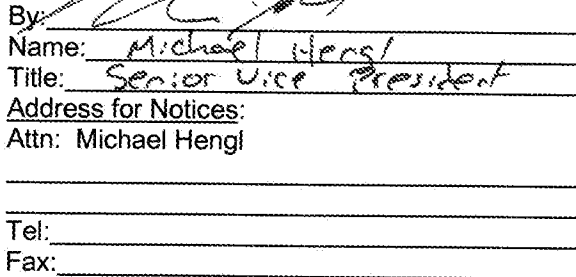 By:
Name: Michael Hengl
Title: Senior Vice President
Address for Notices:
Attn: Michael Hengl
Tel:
Fax: